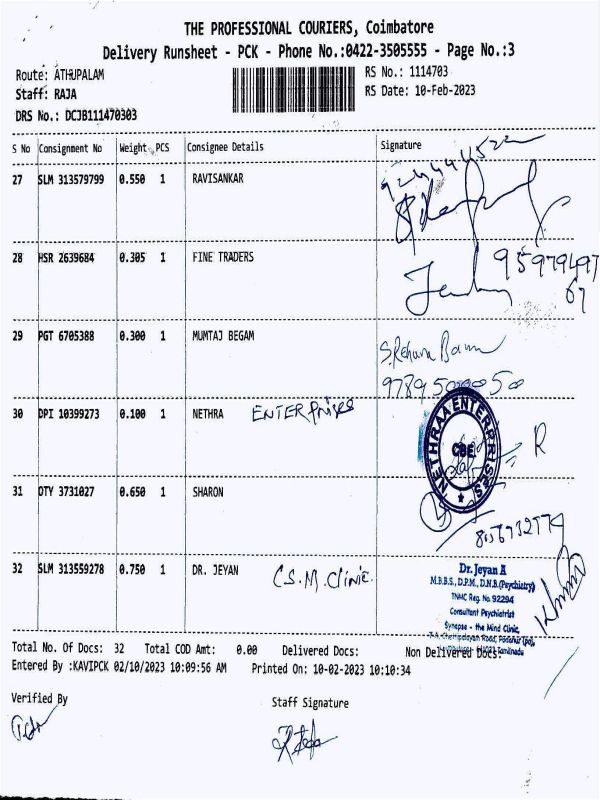 THE PROFESSIONAL COURIERS, Coimbatore
Delivery Runsheet - PCK - Phone No.:0422-3505555 - Page No.:3
Route: ATHUPALAM
RS No.: 1114703
Staff: RAJA
RS Date: 10-Feb-2023
DRS No.: DCJB111470303
S No Consignment No Weight PCS Consignee Details Signature
27 SLM 313579799 0.550 1 RAVISANKAR
28 HSR 2639684 0.305 1 FINE TRADERS
95979497
67
29 PGT 6705388 0.300 1 MUMTAJ BEGAM
30 DPI 10399273 0.100 1 NETHRA ENTERPRISES
NETHRAA ENTERPRISES
CBE
R
31 OTY 3731027 0.650 1 SHARON
32 SLM 313559278 0.750 1 DR. JEYAN C.S.M. Clinic.
Dr. Jeyan A
M.B.B.S., D.P.M., D.N.B.(Psychiatry)
TNMC Reg. No. 92294
Consultant Psychiatrist
Synapse - the Mind Clinic
Total No. Of Docs: 32 Total COD Amt: 0.00 Delivered Docs: Non Delivered Docs:
Entered By :KAVIPCK 02/10/2023 10:09:56 AM Printed On: 10-02-2023 10:10:34
Verified By
Staff Signature